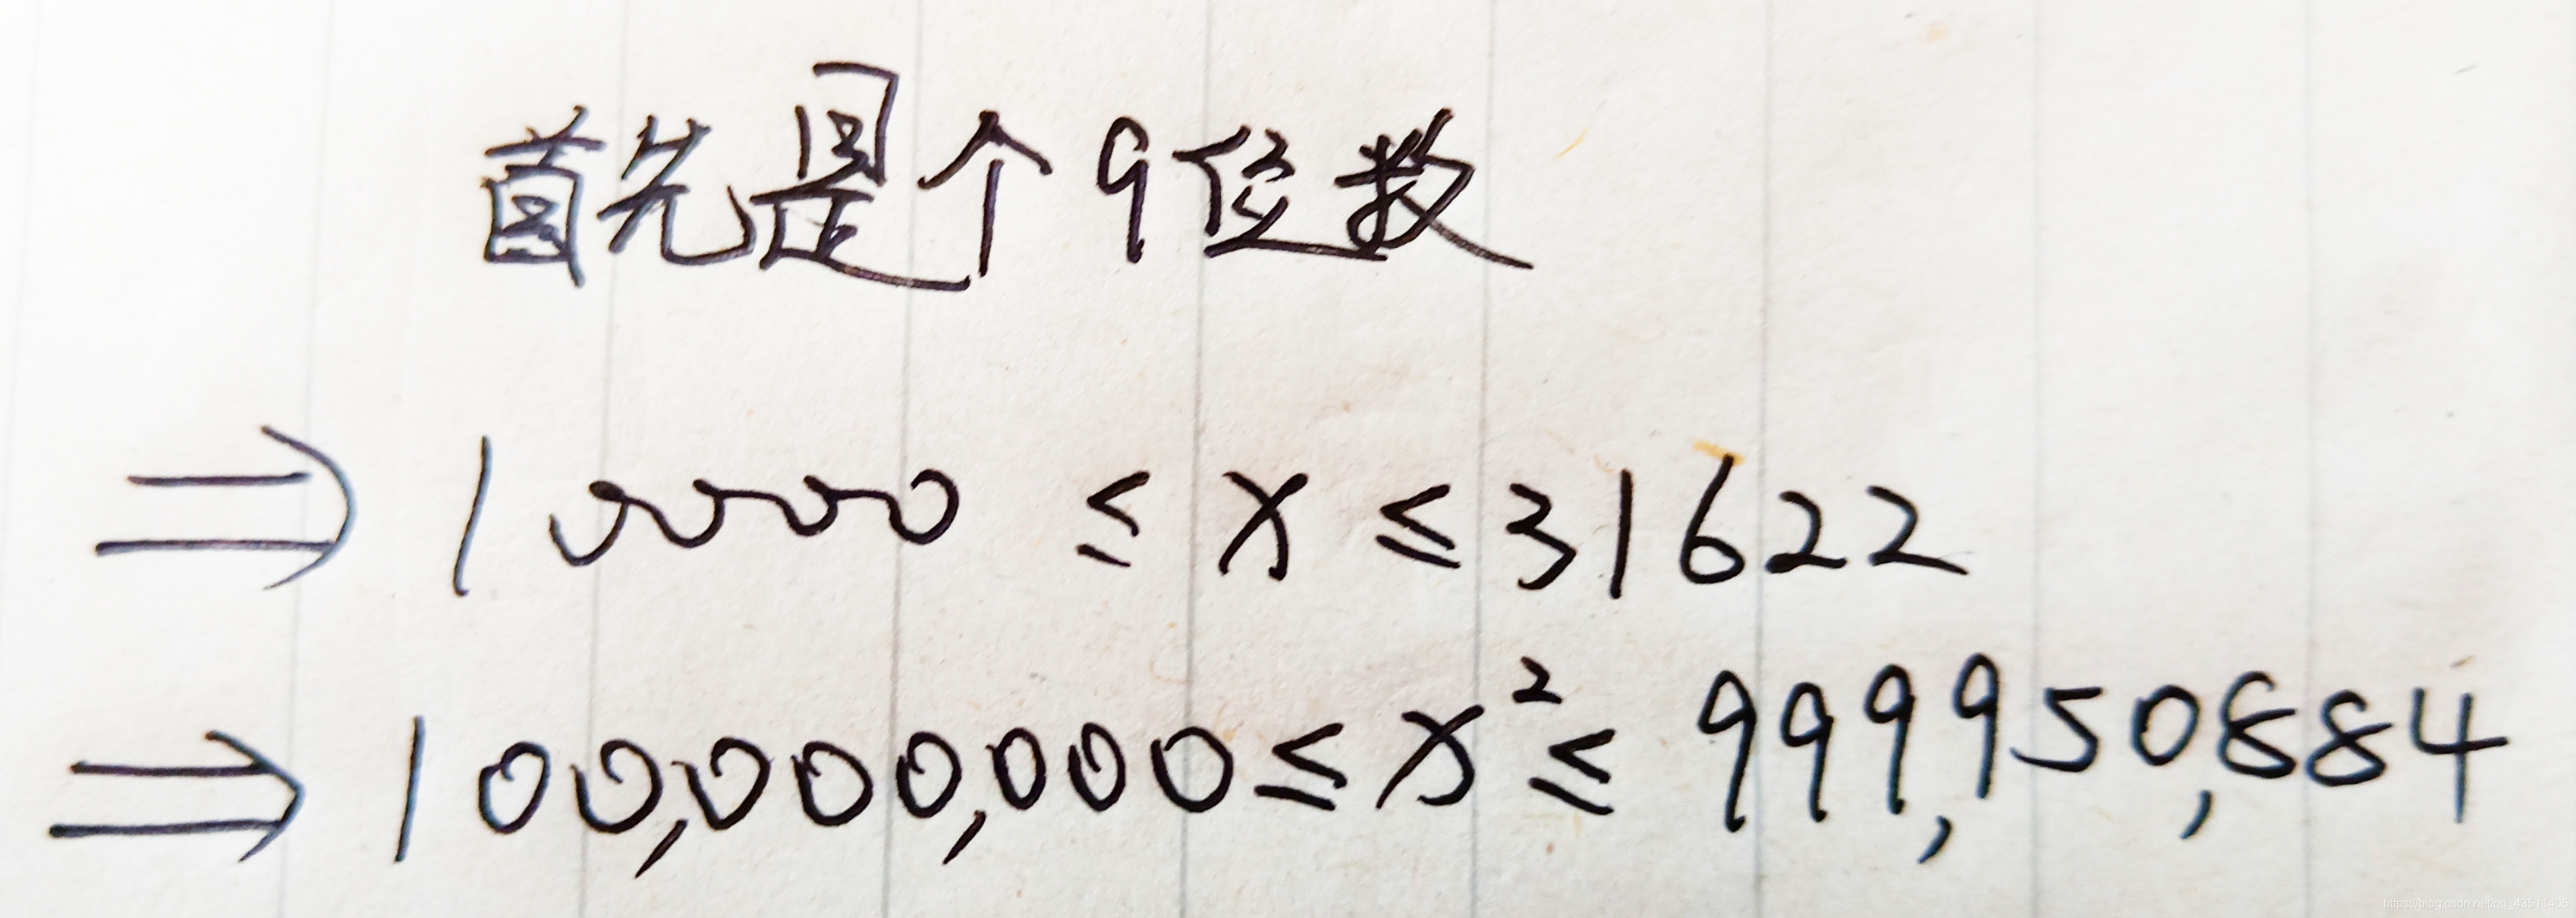 首先是个9位数
⇒ 10000 ≤ x ≤ 31622
⇒ 100,000,000 ≤ x² ≤ 999,950,884
https://blog.csdn.net/qq_43511405